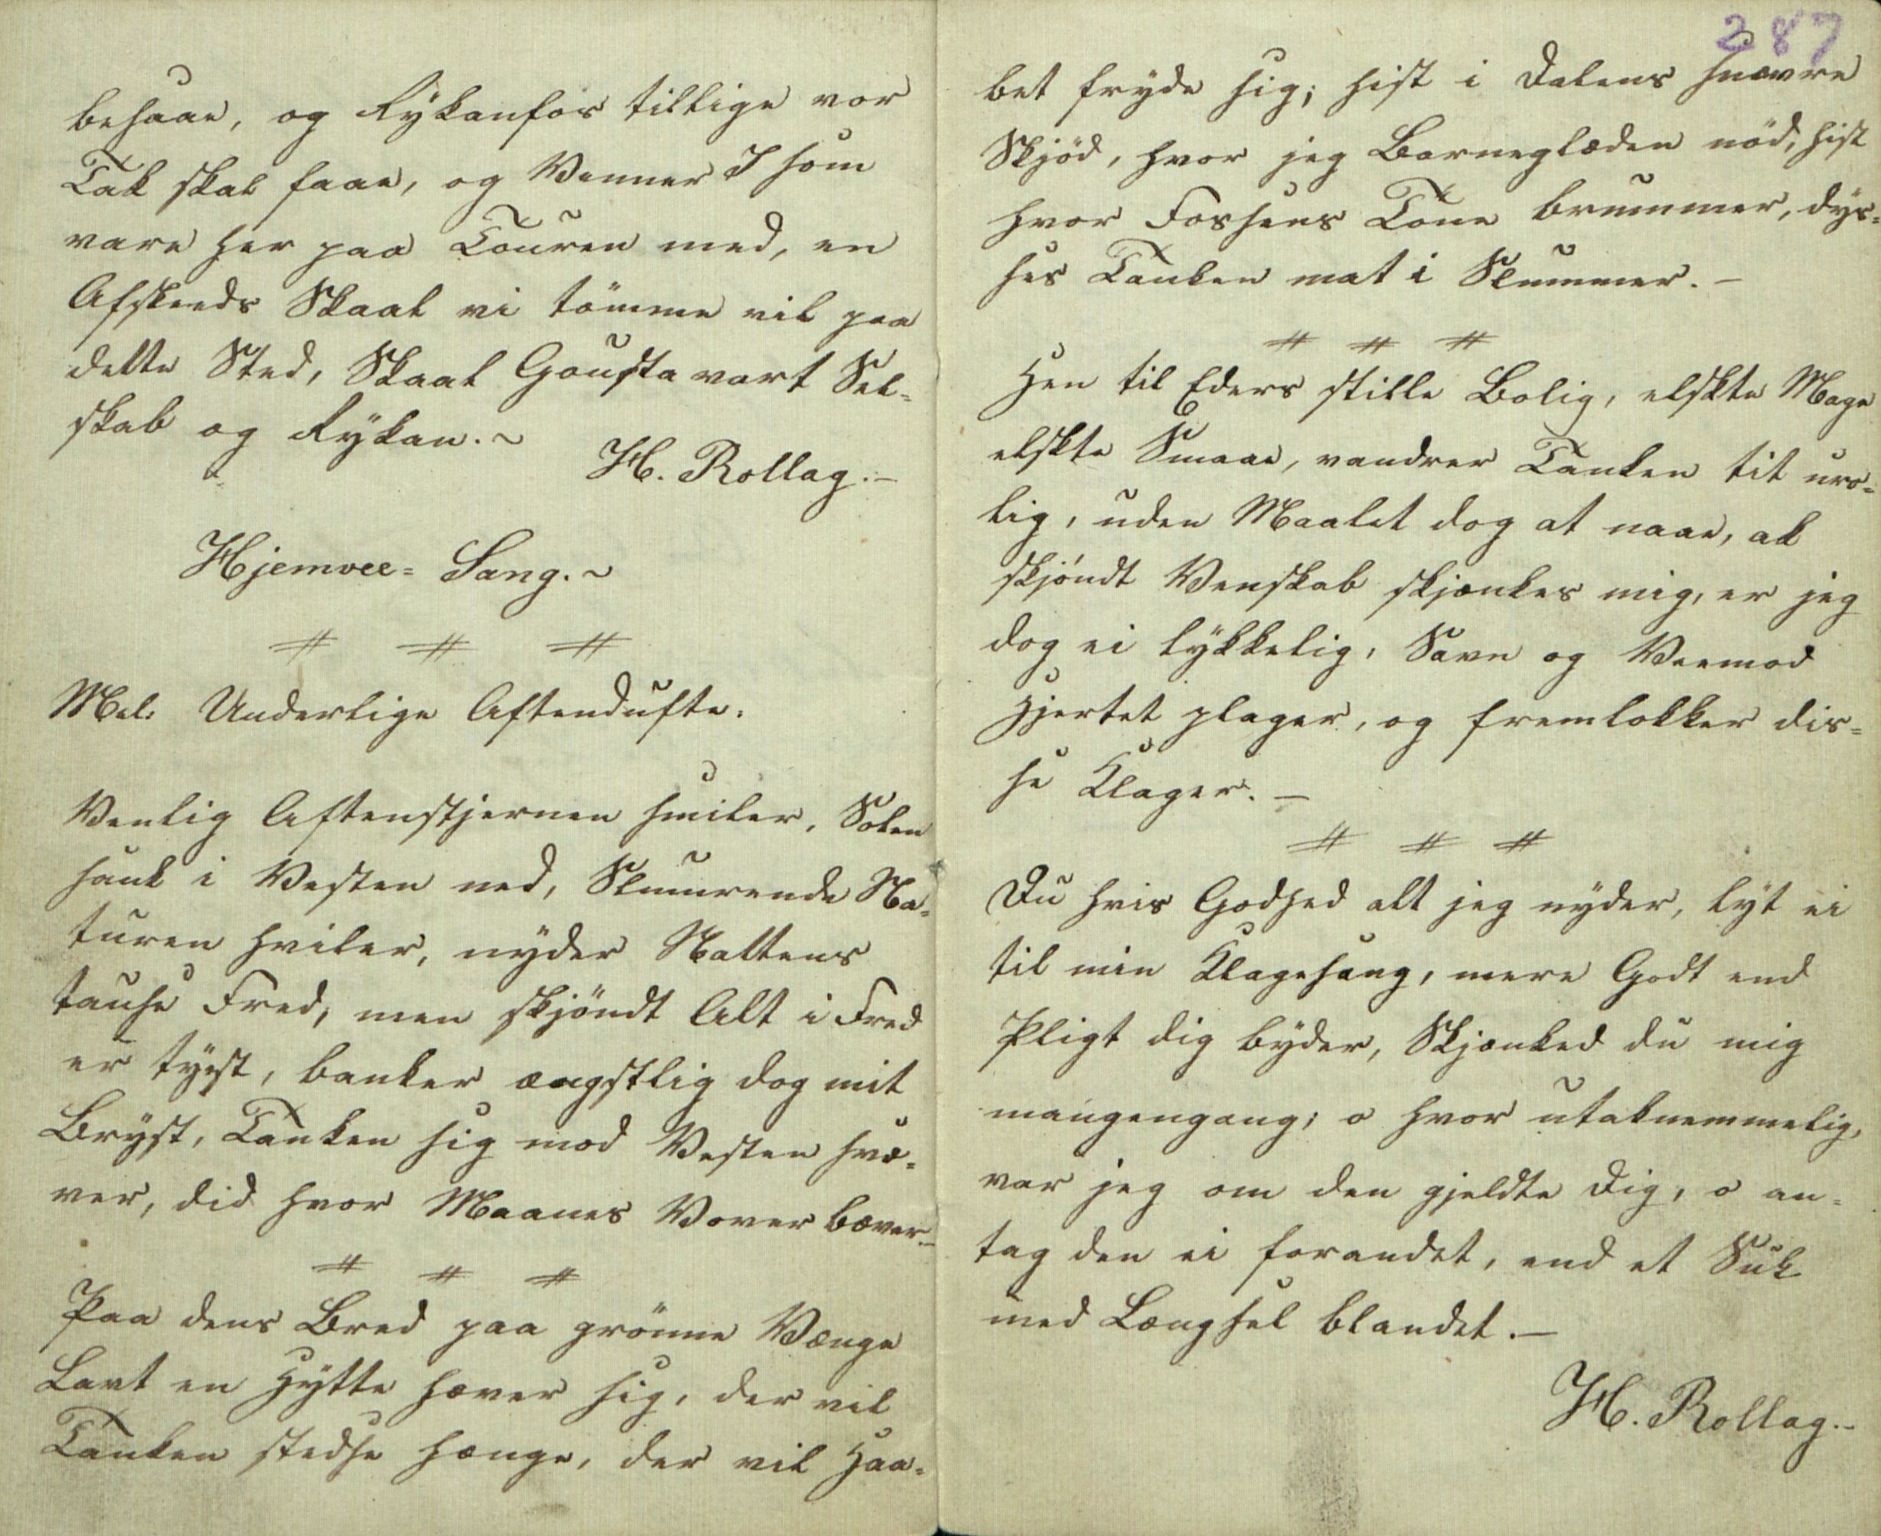 behaae, og Rykanfos tillige vor
Tak skal faae, og Venner I som
vare her paa Touren med, en
Afskeeds Skaal vi tømme vil paa
dette Sted, Skaal Gousta vort Sel-
skab og Rykan. ~
H. Rollag. –
Hjemvee- Sang. ~
Mel: Underlige Aftendufte.
Venlig Aftenstjernen smiler, Solen
sank i Vesten ned, Slumrende Na-
turen hviler, nyder Nattens
tause Fred, men skjöndt Alt i Fred
er tyst, banker ængstlig dog mit
Bryst, Tanken sig mod Vesten svæ-
ver, did hvor Maanes Vover bæver –
Paa dens Bred paa grönne Vænge
Lavt en Hytte hæver sig, der vil
Tanken stedse hænge, der vil Haa-
287
bet fryde sig; hist i Dalens snævre
Skjöd, hvor jeg Barneglæden nöd, hist
hvor Fossens Tone brummer, dys-
ses Tanken mat i Slummer. –
Hen til Eders stille Bolig, elskte Mage
elskte Smaae, vandrer Tanken tit uro-
lig, uden Maalet dog at naae, ak
skjöndt Venskab skjænkes mig, er jeg
dog ei lykkelig, Savn og Veemod
Hjertet plager, og fremlokker dis-
se Klager. –
Du hvis Godhed alt jeg nyder, lyt ei
til min Klagesang, mere Godt end
Pligt dig byder, Skjænked du mig
mangengang; o hvor utaknemmelig,
var jeg om den gjeldte Dig, o an-
tag den ei forandet, end et Suk
med Længsel blandet. –
H. Rollag. –